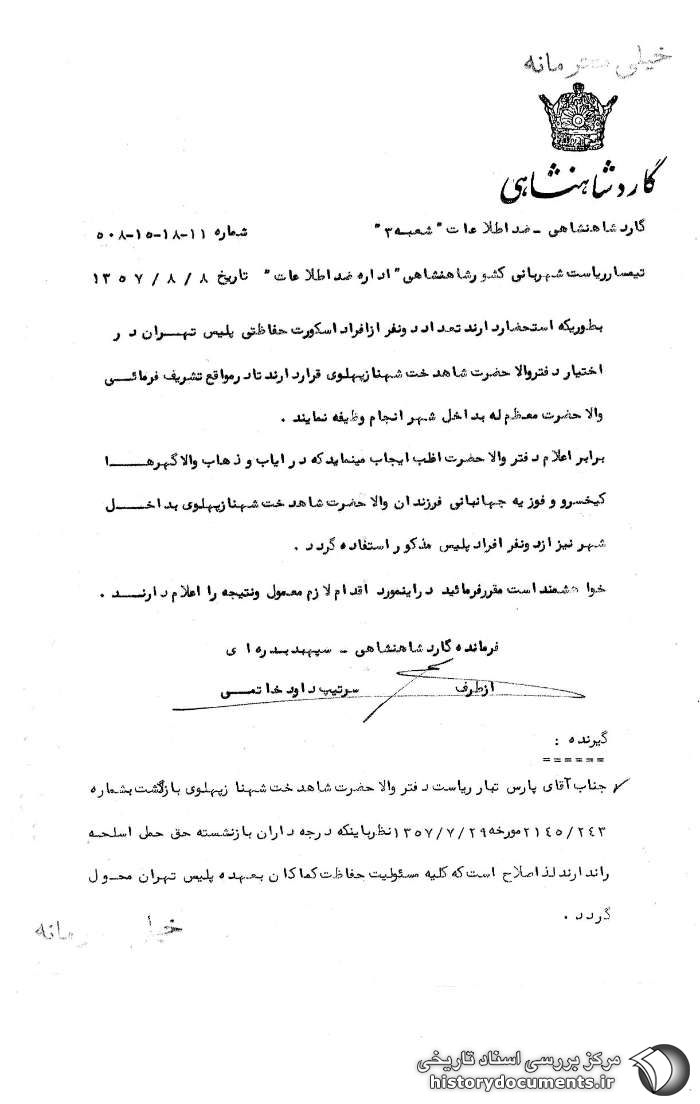 خیلی محرمانه
گارد شاهنشاهی
گارد شاهنشاهی - ضد اطلاعات "شعبه ۳" شماره ۱۱-۱۸-۱۵-۵۰۸
تیمسار ریاست شهربانی کشور شاهنشاهی "اداره ضد اطلاعات" تاریخ ۸ / ۸ / ۱۳۵۷
بطوریکه استحضار دارند تعداد دو نفر از افراد اسکورت حفاظتی پلیس تهران در
اختیار دفتر والا حضرت شاهدخت شهناز پهلوی قرار دارند تا در مواقع تشریف فرمائی
والا حضرت معظم له بداخل شهر انجام وظیفه نمایند .
برابر اعلام دفتر والا حضرت اغلب ایجاب مینماید که در ایاب و ذهاب والا گهرها
کیخسرو و فوزیه جهانبانی فرزندان والا حضرت شاهدخت شهناز پهلوی بداخل
شهر نیز از دو نفر افراد پلیس مذکور استفاده گردد .
خواهشمند است مقرر فرمائید در اینمورد اقدام لازم معمول و نتیجه را اعلام دارند .
فرمانده گارد شاهنشاهی - سپهبد بدره ای
از طرف سرتیپ داود خاتمی
گیرنده :
======
✓ جناب آقای پارس تبار ریاست دفتر والا حضرت شاهدخت شهناز پهلوی بازگشت بشماره
۲۱۴۵/۲۴۳ مورخه ۱۳۵۷/۷/۲۹ نظر باینکه درجه داران بازنشسته حق حمل اسلحه
را ندارند لذا صلاح است که کلیه مسئولیت حفاظت کماکان بعهده پلیس تهران محول
گردد .
خیلی محرمانه
مرکز بررسی اسناد تاریخی
historydocuments.ir